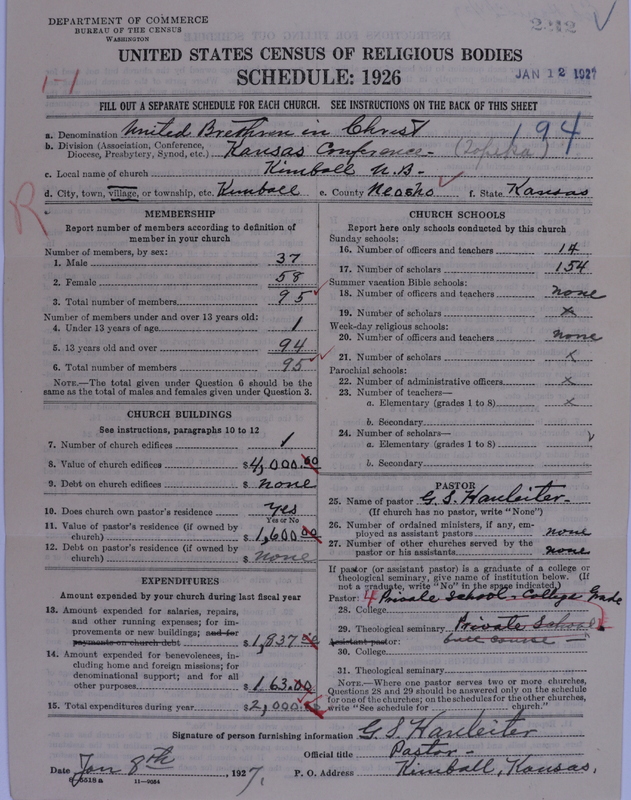 DEPARTMENT OF COMMERCE
BUREAU OF THE CENSUS
WASHINGTON
2212
UNITED STATES CENSUS OF RELIGIOUS BODIES
SCHEDULE: 1926
JAN 12 1927
1-1
FILL OUT A SEPARATE SCHEDULE FOR EACH CHURCH. SEE INSTRUCTIONS ON THE BACK OF THIS SHEET
a. Denomination United Brethren in Christ
194
b. Division (Association, Conference, Diocese, Presbytery, Synod, etc.) Kansas Conference- (Topeka)
c. Local name of church Kimball U.B-
d. City, town, village, or township, etc. Kimball e. County Neosho f. State Kansas
R
MEMBERSHIP
Report number of members according to definition of
member in your church
Number of members, by sex:
1. Male 37
2. Female 58
3. Total number of members 95
Number of members under and over 13 years old:
4. Under 13 years of age 1
5. 13 years old and over 94
6. Total number of members 95
NOTE.—The total given under Question 6 should be
same as the total of males and females given under Question 3.
CHURCH BUILDINGS
See instructions, paragraphs 10 to 12
7. Number of church edifices 1
8. Value of church edifices $4,000.00
9. Debt on church edifices $ none
10. Does church own pastor's residence Yes
Yes or No
11. Value of pastor's residence (if owned by
church) $1,600.00
12. Debt on pastor's residence (if owned by
church) $ none
EXPENDITURES
Amount expended by your church during last fiscal year
13. Amount expended for salaries, repairs,
and other running expenses; for im-
provements or new buildings; and for
payments on church debt $1,837.00
14. Amount expended for benevolences, in-
cluding home and foreign missions; for
denominational support; and for all
other purposes $163.00
15. Total expenditures during year $2,000.00
CHURCH SCHOOLS
Report here only schools conducted by this church
Sunday schools:
16. Number of officers and teachers 14
17. Number of scholars 154
Summer vacation Bible schools:
18. Number of officers and teachers none
19. Number of scholars x
Week-day religious schools:
20. Number of officers and teachers none
21. Number of scholars x
Parochial schools:
22. Number of administrative officers x
23. Number of teachers—
a. Elementary (grades 1 to 8) x
b. Secondary
24. Number of scholars—
a. Elementary (grades 1 to 8)
b. Secondary
PASTOR
25. Name of pastor G. S. Hauleiter-
(If church has no pastor, write "None")
26. Number of ordained ministers, if any, em-
ployed as assistant pastors none
27. Number of other churches served by the
pastor or his assistants none
If pastor (or assistant pastor) is a graduate of a college or
theological seminary, give name of institution below. (If
not a graduate, write "No" in the space indicated.)
Pastor: 4 Private School - College Grade
28. College
29. Theological seminary Private School
Assistant pastor: full course
30. College
31. Theological seminary
NOTE.—Where one pastor serves two or more churches,
Questions 28 and 29 should be answered only on the schedule
for one of the churches; on the schedules for the other churches,
write "See schedule for church."
Signature of person furnishing information G. S. Hauleiter
Official title Pastor-
Date Jan 8th, 1927. P. O. Address Kimball, Kansas,
11-9084